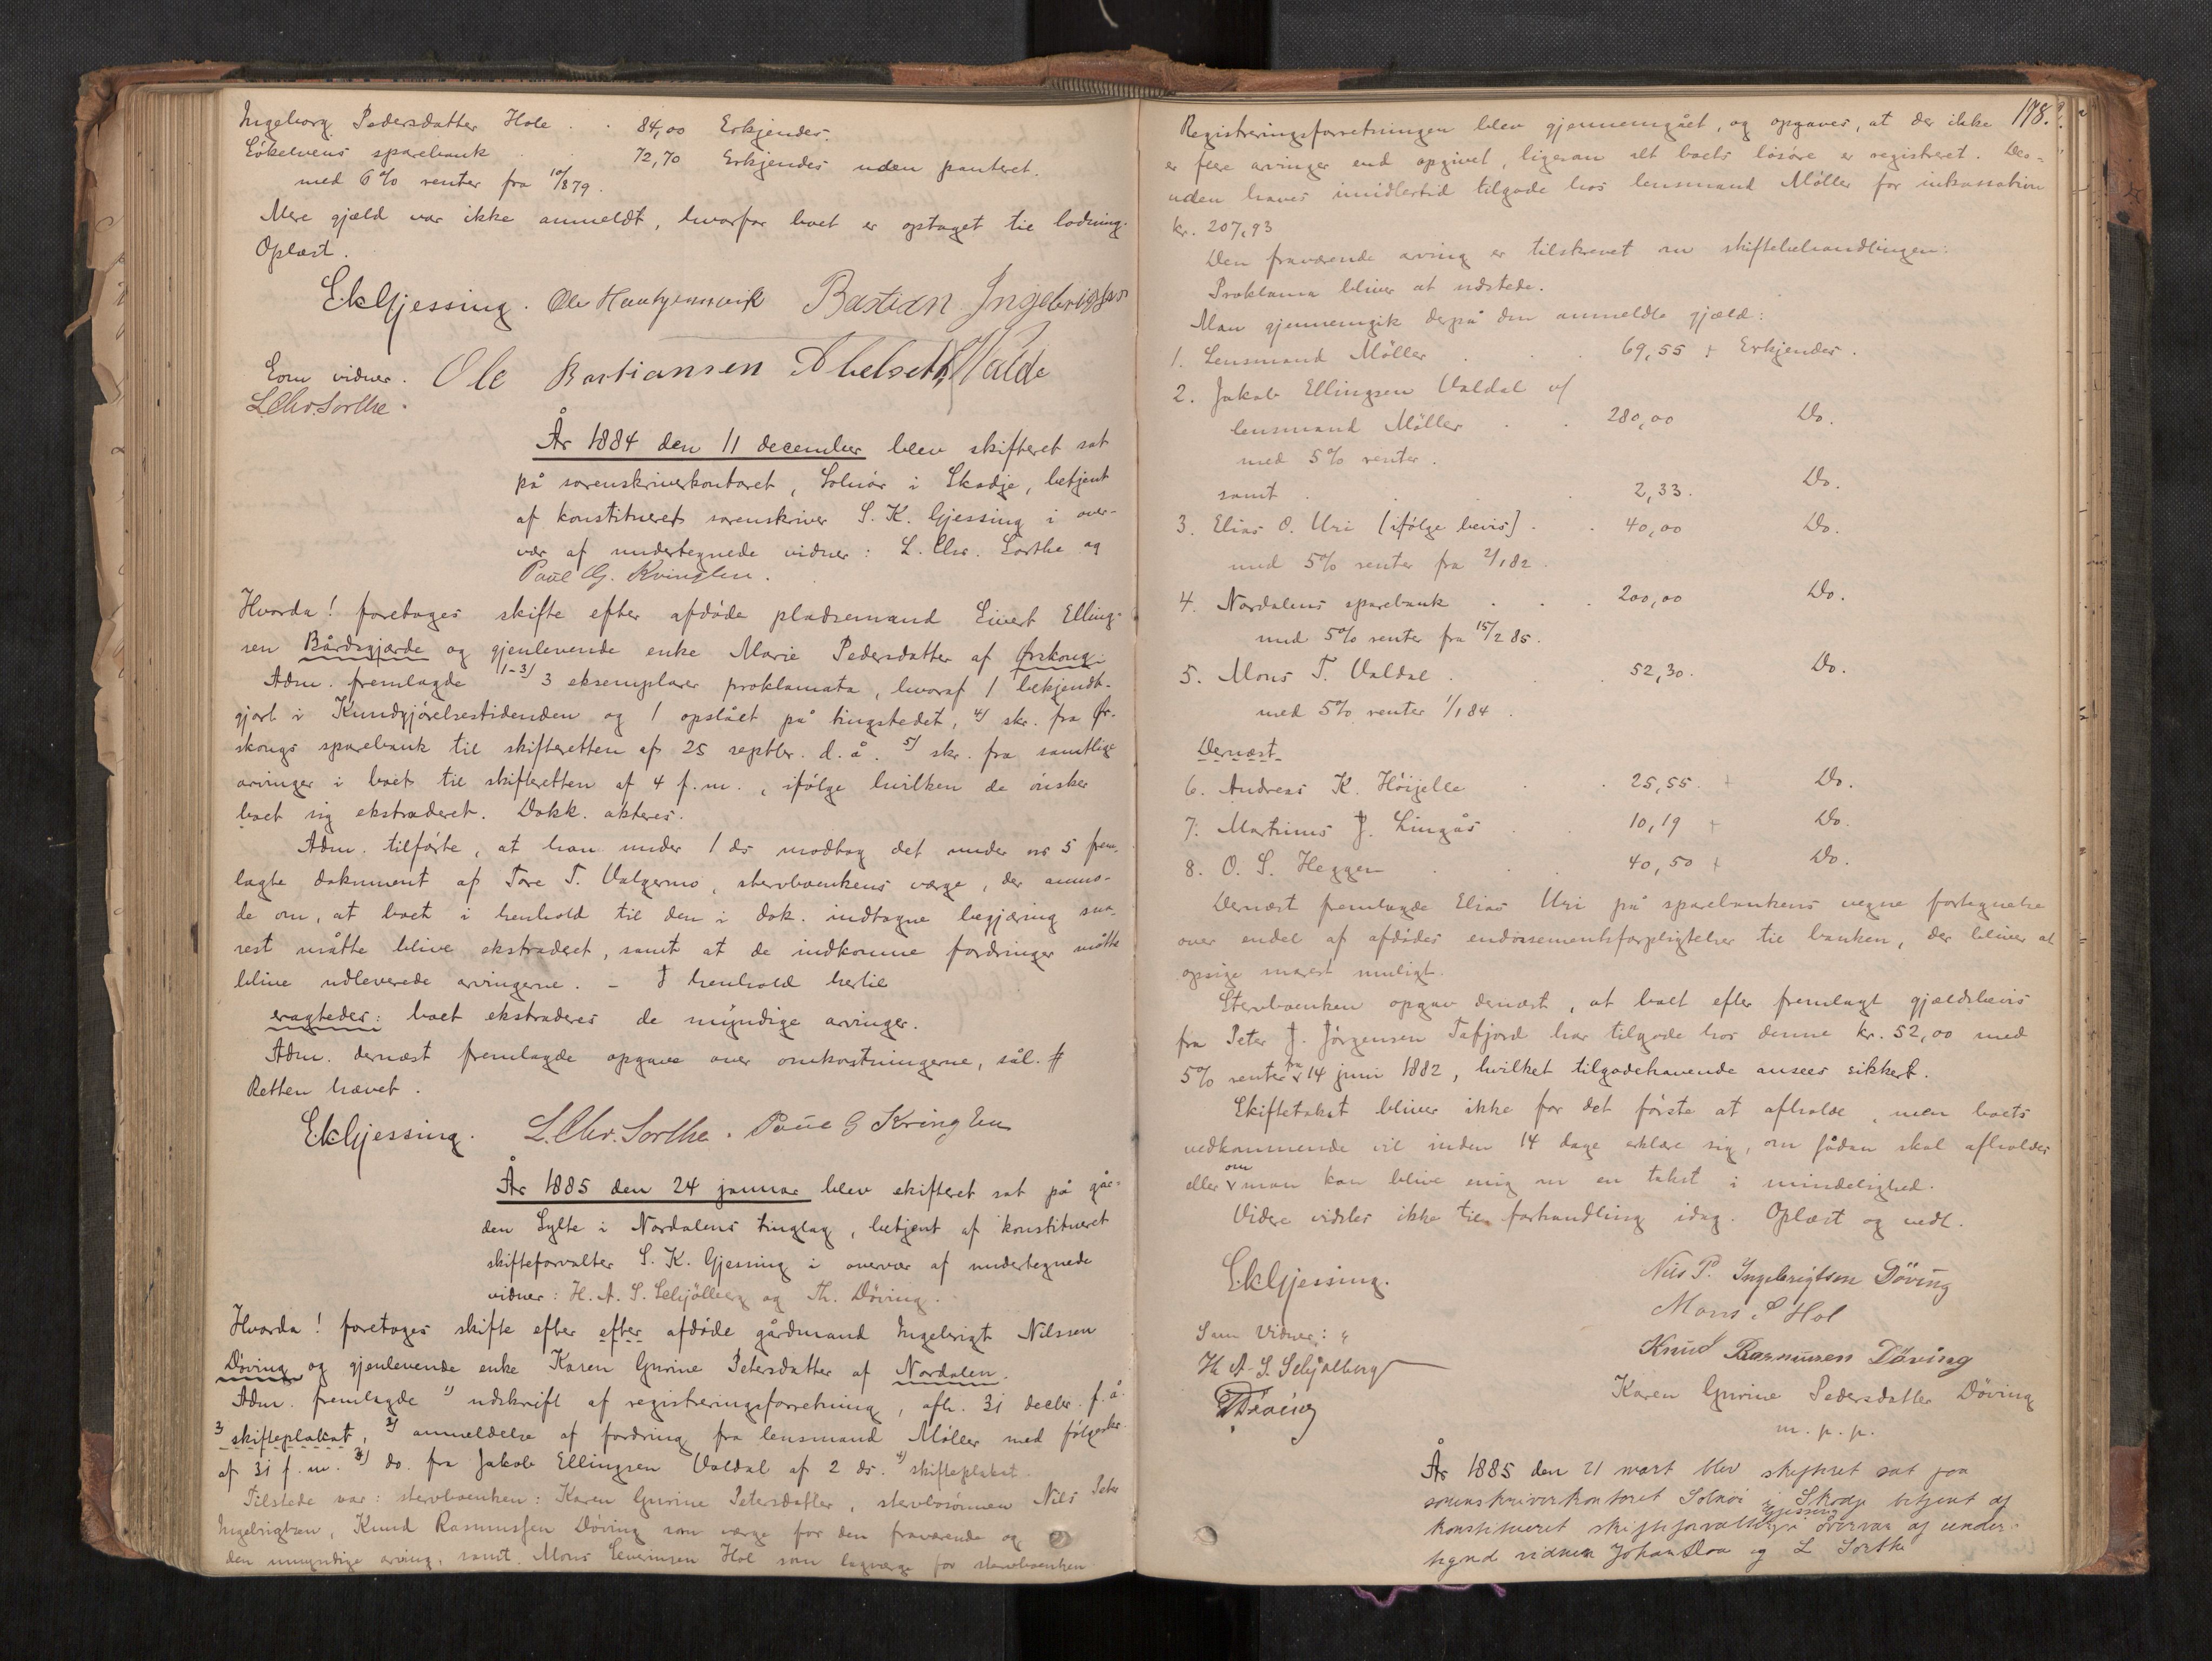 Ingeborg Pedersdatter Hole . . 84,00 Erkjendes.
Søkelvens sparebank . . 72,70 Erkjendes uden panteret.
med 6% renter fra 10/8 79.
Mere gjæld var ikke anmeldt, hvorfor boet er optaget til lodning.
Oplæst.
EkGjessing. Ole Bastian Ingebrigtsen
Som vidner. Ole Bastiansen Abelseth Valde
L.Chr.Sorthe.
År 1884 den 11 december blev skifteret sat
på sorenskriverkontoret, Solnör i Skodje, betjent
af konstitueret sorenskriver S. K. Gjessing i over-
vær af undertegnede vidner: L. Chr. Sorthe og
Paul G. Kringlen.
Hvorda! foretages skifte efter afdöde pladsemand Sivert Elling-
sen Bårdsgjærde og gjenlevende enke Marie Pedersdatter af Ørskoug.
Adm. fremlagde 1-3) 3 eksemplarer proklamata, hvoraf 1 bekjendt-
gjort i Kundgjörelsestidenden og 1 opslået på tingstedet, 4) skr. fra Ør-
skougs sparebank til skifteretten af 25 septbr. d. å. 5) skr. fra samtlige
arvinger i boet til skifteretten af 4 f. m., ifölge hvilken de önsker
boet sig ekstraderet. Dokk. akteres.
Adm. tilförte, at han under 1 ds modtog det under no 5 frem-
lagte dokument af Tore T. Valgermo, stervboenkens værge, der anmo-
de om, at boet i henhold til den i dok. indtagne begjæring sna-
rest måtte blive ekstraderet, samt at de indkomne fordringer måtte
blive udleverede arvingerne. – I henhold hertil
eragtedes: boet ekstraderes de myndige arvinger.
Adm. dernæst fremlagde opgave over omkostningerne, sål. #
Retten hævet.
EkGjessing. L.Chr.Sorthe. Paul G Kringlen
År 1885 den 24 januar blev skifteret sat på går-
den Sylte i Nordalens tinglag, betjent af konstitueret
skifteforvalter S. K. Gjessing i overvær af undertegnede
vidner: H. A. S. Schjölberg og Th. Döving.
Hvorda! foretages skifte efter efter afdöde gårdmand Ingebrigt Nilssen
Döving og gjenlevende enke Karen Gurine Petersdatter af Nordalen.
Adm. fremlagde 1) udskrift af registreringsforretning, afh. 31 decbr. f. å.
3 skifteplakat, 2) anmeldelse af fordring fra lensmand Möller med fölgeskr.
af 31 f. m. 3) do. fra Jakob Ellingsen Valdal af 2 ds. 4) skifteplakat.
Tilstede var: stervboenken: Karen Gurine Petersdatter, stervbosönnen Nils Peter
Ingebrigtsen, Knud Rasmussen Döving som værge for den fraværende og
den umyndige arving, samt Mons Severinsen Hol som lagværge for stervboenken
178.
Registreringsforretningen blev gjennemgået, og opgaves, at der ikke
er flere arvinger end opgivet, ligesom alt boets lösöre er registreret. Des-
uden haves imidlertid tilgode hos lensmand Möller for inkassation
kr. 207,93
Den fraværende arving er tilskrevet om skiftebehandlingen.
Proklama bliver at udstede.
Man gjennemgik derpå den anmeldte gjæld:
1. Lensmand Möller . . 69,55 + Erkjendes.
2. Jakob Ellingsen Valdal v/
lensmand Möller . . 280,00 Do.
med 5% renter.
samt . . 2,33. Do.
3. Elias O. Uri (ifölge bevis) . . 40,00 Do.
med 5% renter fra 2/1 82.
4. Nordalens sparebank . . 200,00 Do.
med 5% renter fra 15/2 85.
5. Mons T. Valdal . . 52,30. Do.
med 5% renter 1/1 84.
Dernæst
6. Andreas K. Höijelle . . 25,55. + Do.
7. Martinus J. Lingås . . 10,19 + Do.
8. O. S. Heggen . . 40,50 + Do.
Dernæst fremlagde Elias Uri på sparebankens vegne fortegnelse
over endel af afdödes endossementsforpligtelser til banken, der bliver at
opsige snarest muligt.
Stervboenken opgav dernæst, at boet efter fremlagt gjældsbevis
fra Peter J. Jörgensen Tafjord har tilgode hos denne kr. 52,00 med
5% renter fra 14 juni 1882, hvilket tilgodehavende ansees sikkert.
Skiftetakst bliver ikke for det förste at afholde, men boets
vedkommende vil inden 14 dage erklære sig, om sådan skal afholdes
eller om man kan blive enig om en takst i mindelighed.
Videre vidstes ikke til forhandling idag. Oplæst og vedt.
EkGjessing.
Nils P. Ingebrigtsen Döving
Mons S Hol
Knud Rasmussen Döving
Karen Gurine Pedersdatter Döving
m. p. p.
Som Vidner:
H. A. S. Schjølberg
ThDöving
År 1885 den 21 mart blev skifteret sat paa
sorenskriverkontoret Solnör i Skodje betjent af
konstitueret skifteforvalter Gjessing i overvær af under-
tegned vidner Johan Sloa og L Sorthe